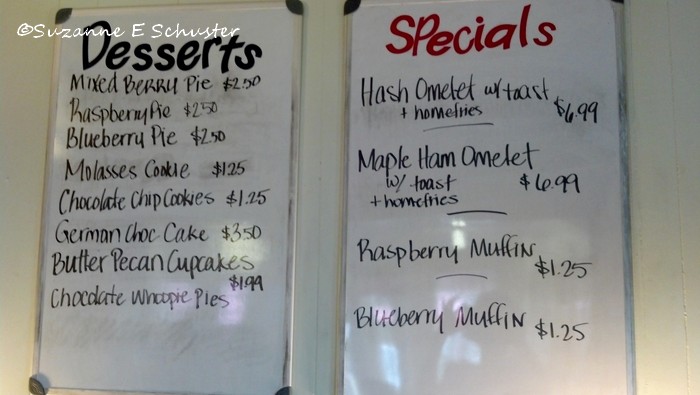 ©Suzanne E Schuster
Desserts
Mixed Berry Pie $2.50
Raspberry Pie $2.50
Blueberry Pie $2.50
Molasses Cookie $1.25
Chocolate Chip Cookies $1.25
German Choc Cake $3.50
Butter Pecan Cupcakes
$1.99
Chocolate Whoopie Pies
Specials
Hash Omelet w/ toast
+ homefries $6.99
Maple Ham Omelet
w/ toast $6.99
+ homefries
Raspberry Muffin
$1.25
Blueberry Muffin $1.25